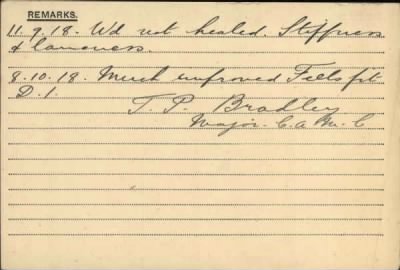 REMARKS.
11.9.18. W'd not healed. Stiffness
& lameness.
8.10.18. Much improved Feels fit
D.1.
T. P. Bradley
Major. C.A.M.C